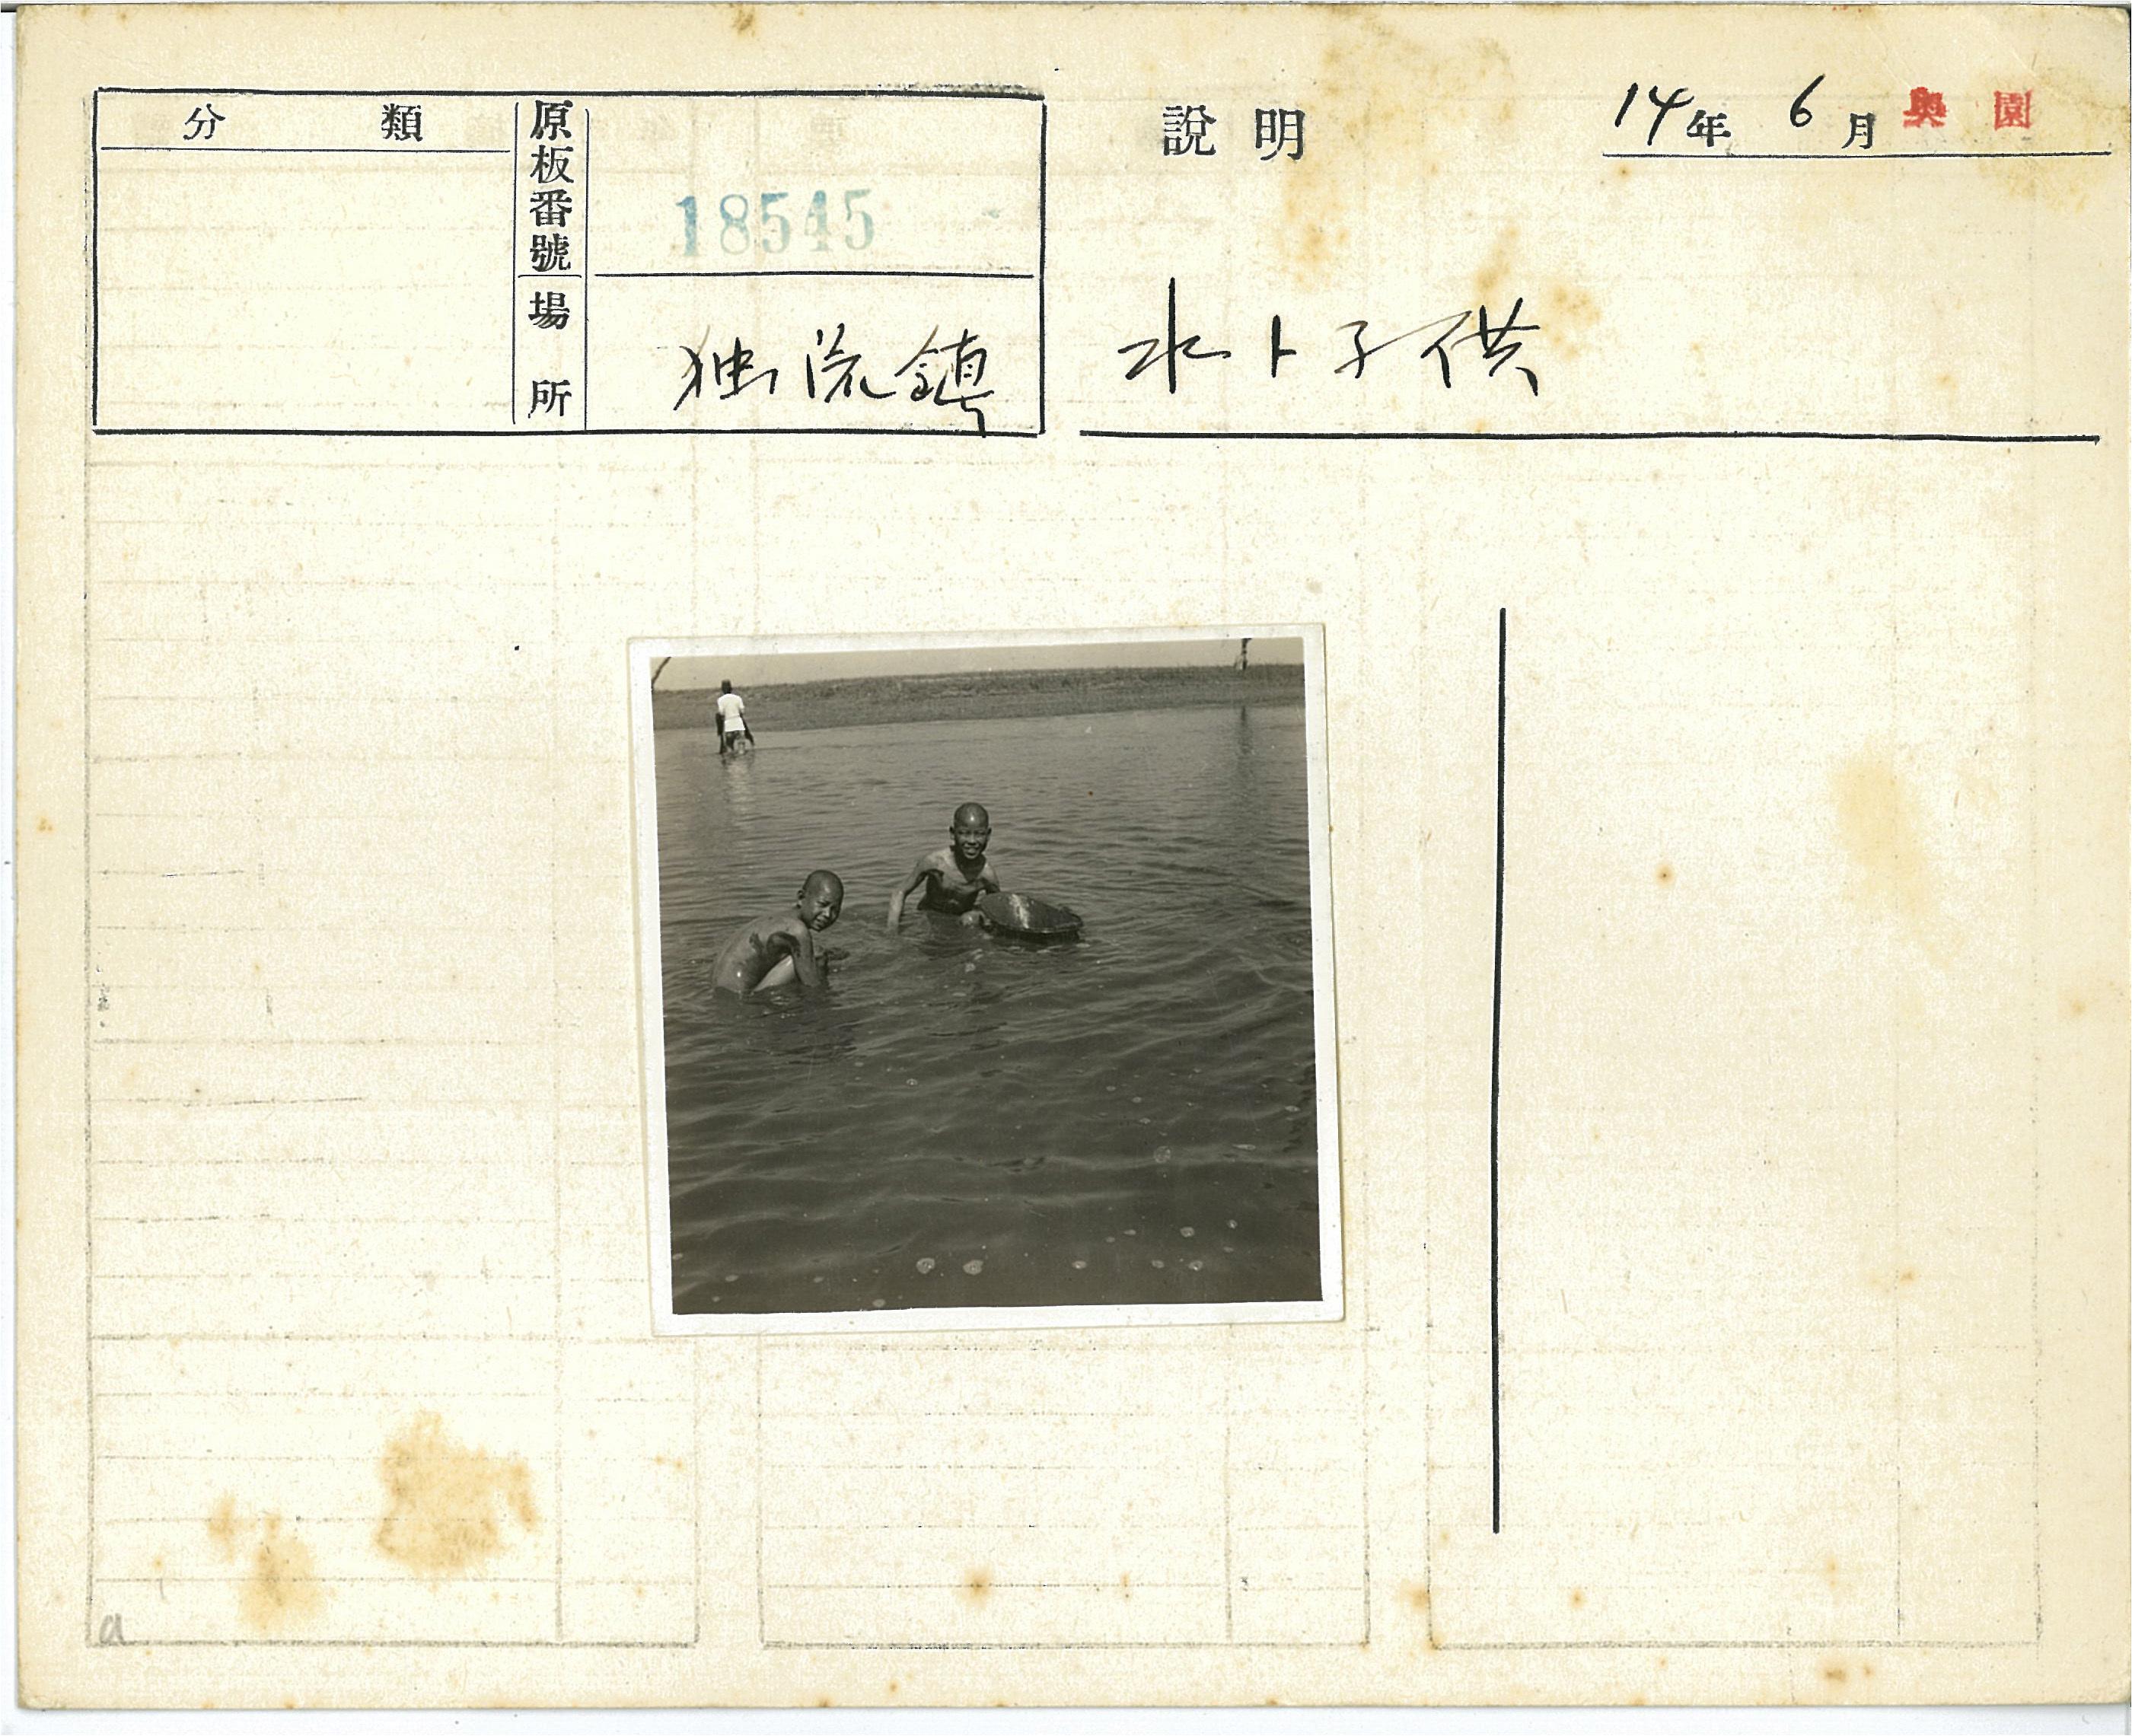 分類
原板番號
18545
場所
独流鎮
説明
14年 6月 奥園
水ト子供
a